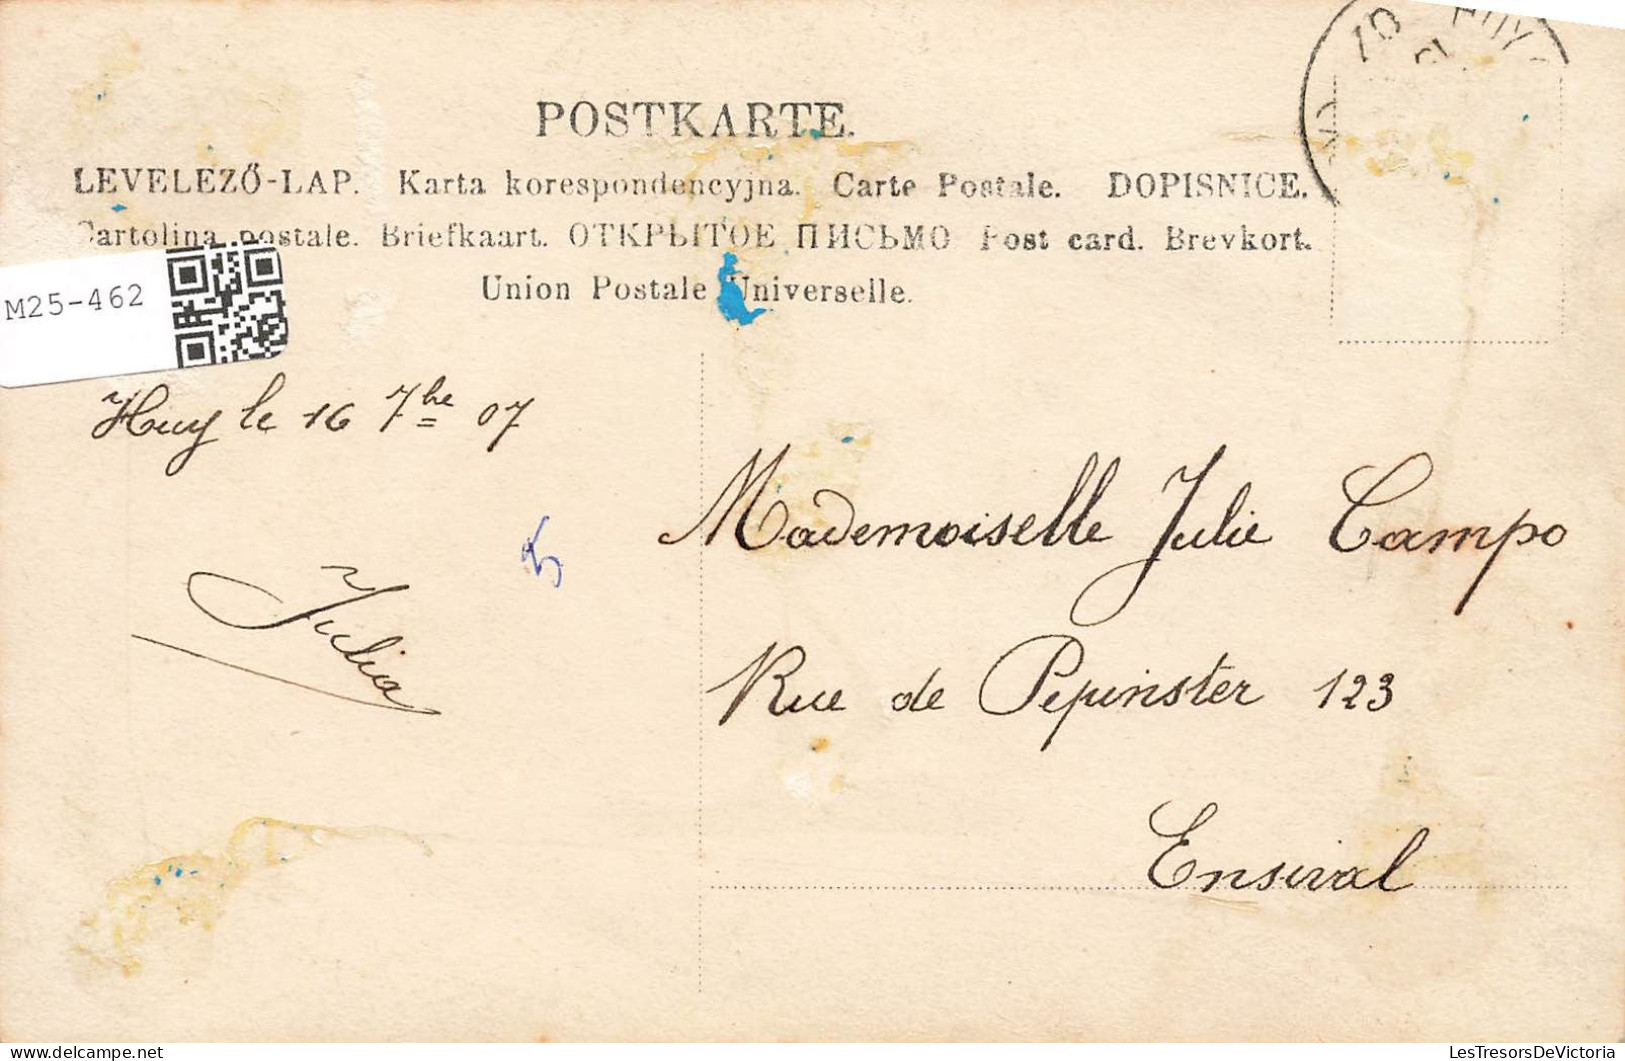 POSTKARTE.
LEVELEZŐ-LAP. Karta korespondencyjna. Carte Postale. DOPISNICE.
Cartolina postale. Briefkaart. ОТКРЫТОЕ ПИСЬМО Post card. Brevkort.
Union Postale Universelle.
M25-462
HUY
07
Huy le 16 7bre 07
Julia
5
Mademoiselle Julie Campo
Rue de Pepinster 123
Ensival
LesTresorsDeVictoria